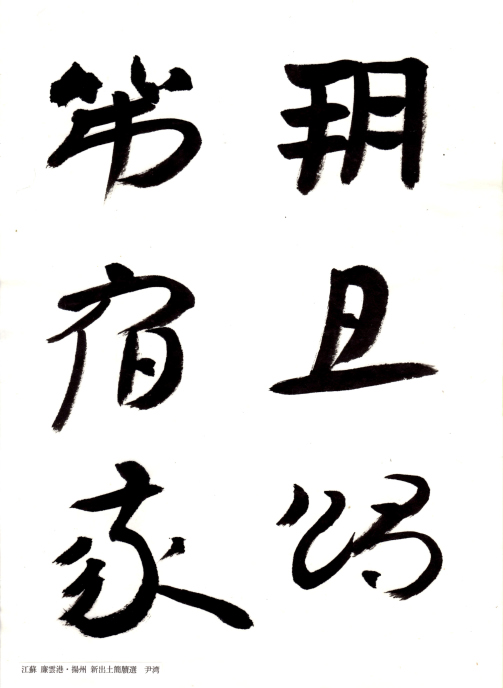 旦
謁
第
宿
家
江蘇 廉雲港・揚州 新出土簡牘選 尹湾